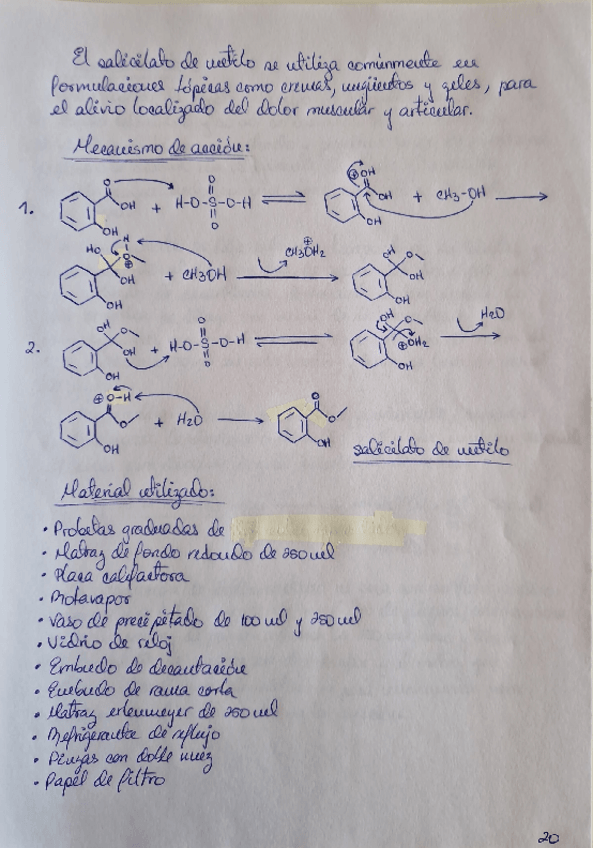 El salicilato de metilo se utiliza comúnmente en
formulaciones tópicas como cremas, ungüentos y geles, para
el alivio localizado del dolor muscular y articular.
Mecanismo de acción:
1.
O OH OH + H-O-S-O-H O O ⇌ ⊕OH OH OH + CH3-OH →
HO H O⊕ OH OH + CH3OH CH3OH2⊕ → OH O OH OH
2.
OH O OH OH + H-O-S-O-H O O ⇌ OH O ⊕OH2 OH H2O →
⊕O-H O OH + H2O → O O OH
salicilato de metilo
Material utilizado:
• Probetas graduadas de
• Matraz de fondo redondo de 250 ml
• Placa calefactora
• Rotavapor
• Vaso de precipitado de 100 ml y 250 ml
• Vidrio de reloj
• Embudo de decantación
• Embudo de rama corta
• Matraz erlenmeyer de 250 ml
• Refrigerante de reflujo
• Pinzas con doble nuez
• Papel de filtro
20